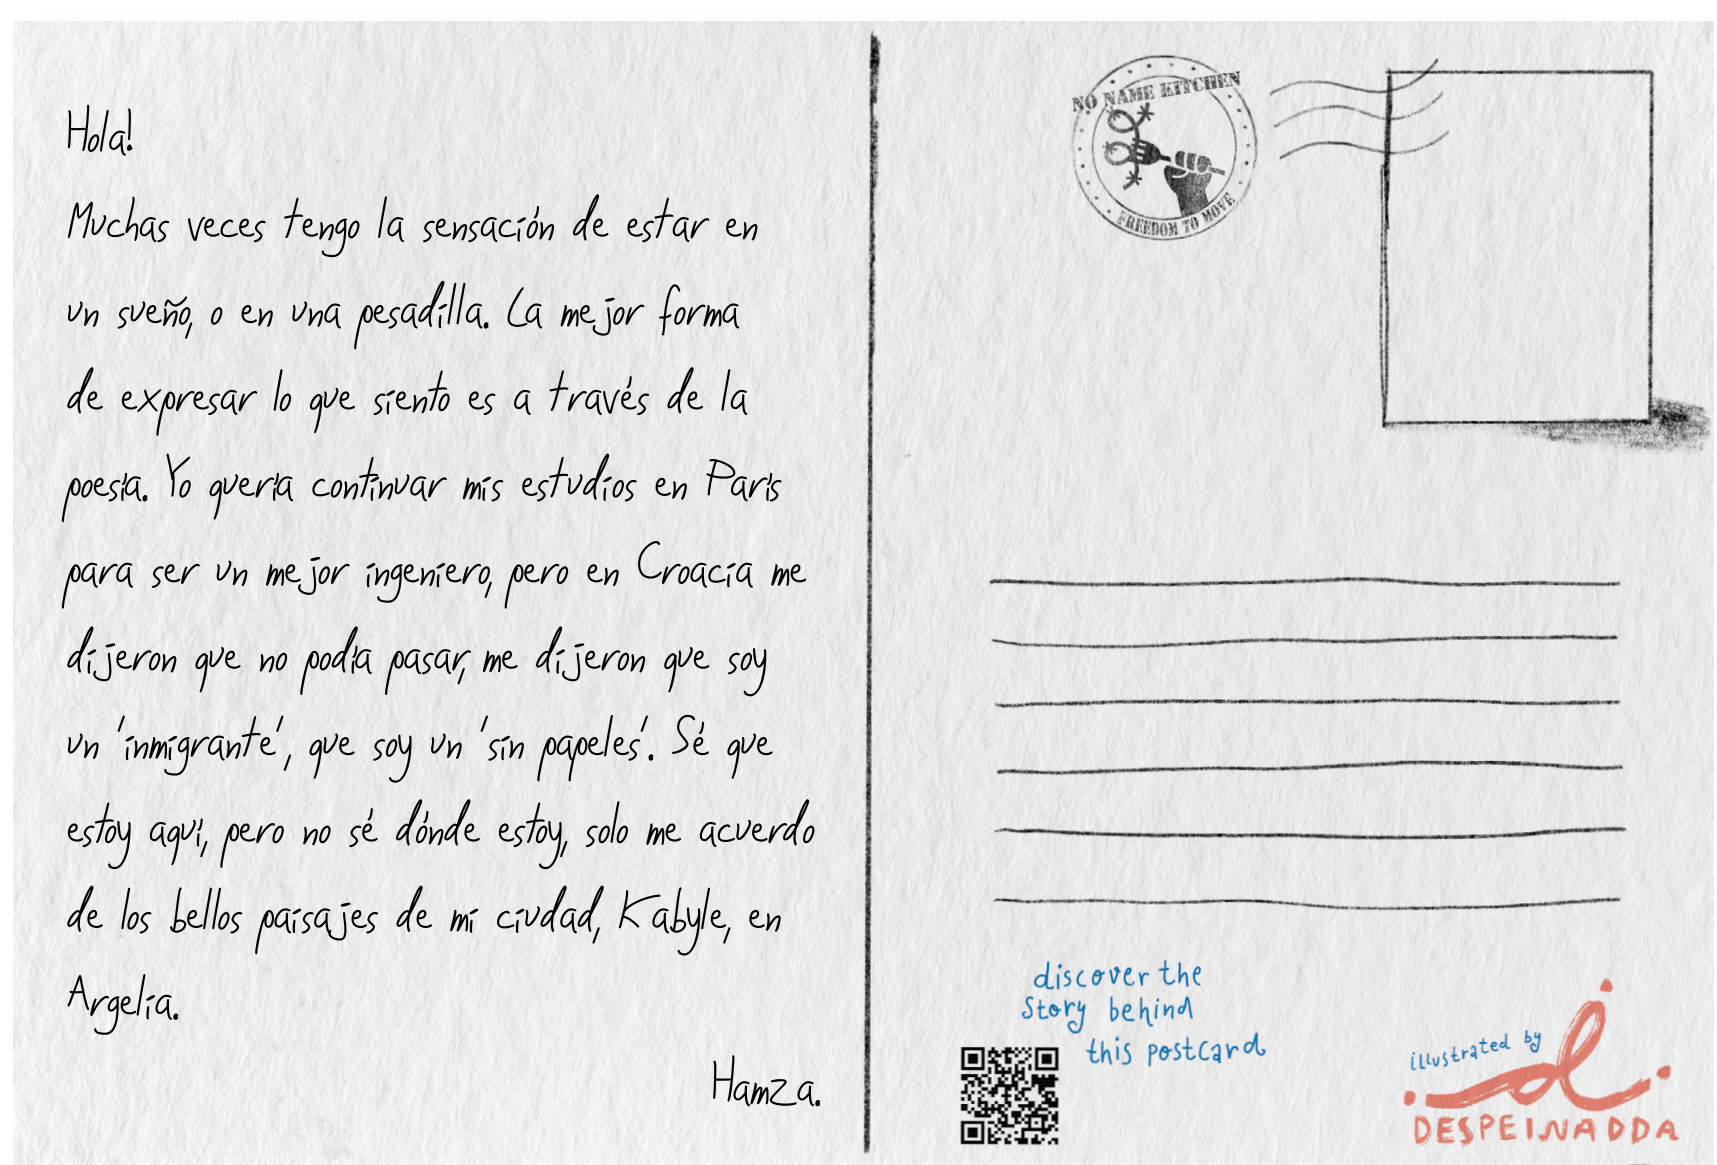 Hola!
Muchas veces tengo la sensación de estar en
un sueño, o en una pesadilla. La mejor forma
de expresar lo que siento es a través de la
poesía. Yo quería continuar mis estudios en París
para ser un mejor ingeniero, pero en Croacia me
dijeron que no podía pasar, me dijeron que soy
un 'inmigrante', que soy un 'sin papeles'. Sé que
estoy aquí, pero no sé dónde estoy, solo me acuerdo
de los bellos paisajes de mi ciudad, Kabyle, en
Argelia.
Hamza.
NO NAME KITCHEN
FREEDOM TO MOVE
discover the
story behind
this postcard
illustrated by
DESPEINADDA